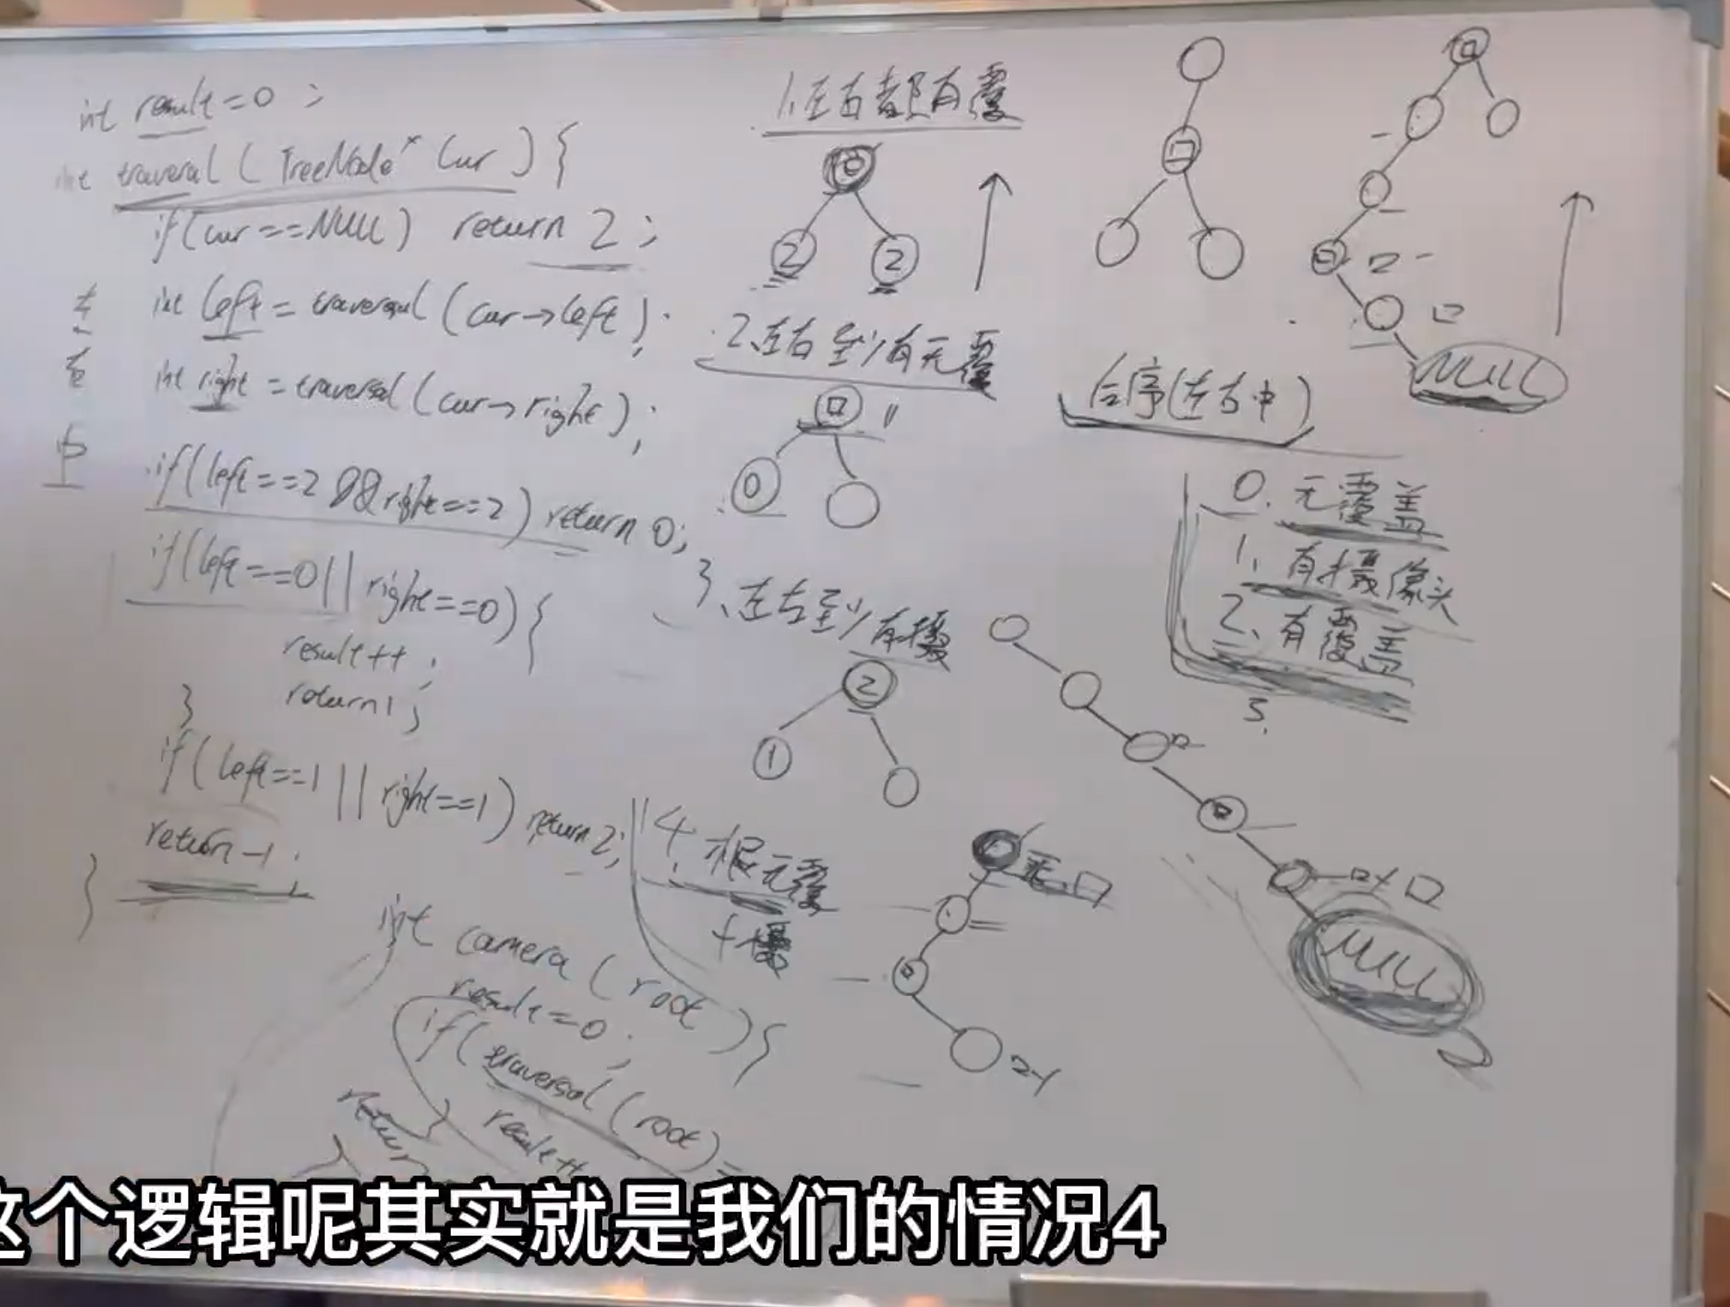 int result=0;
int traversal(TreeNode* cur){
if(cur==NULL) return 2;
左 int left=traversal(cur->left);
右 int right=traversal(cur->right);
中
if(left==2&&right==2)return 0;
if(left==0||right==0){
result++;
return1;
}
if(left==1||right==1)return2;
return-1;
}
int camera(root){
result=0;
if(traversal(root)=
result++
return
}
1.左右都有覆
0
2 2
2、左右至少有无覆
0
3、左右至少有摄
2
1
4.根无覆
+摄
无口
后序(左右中)
NULL
0.无覆盖
1、有摄像头
2、有覆盖
3.
NULL
2
这个逻辑呢其实就是我们的情况4